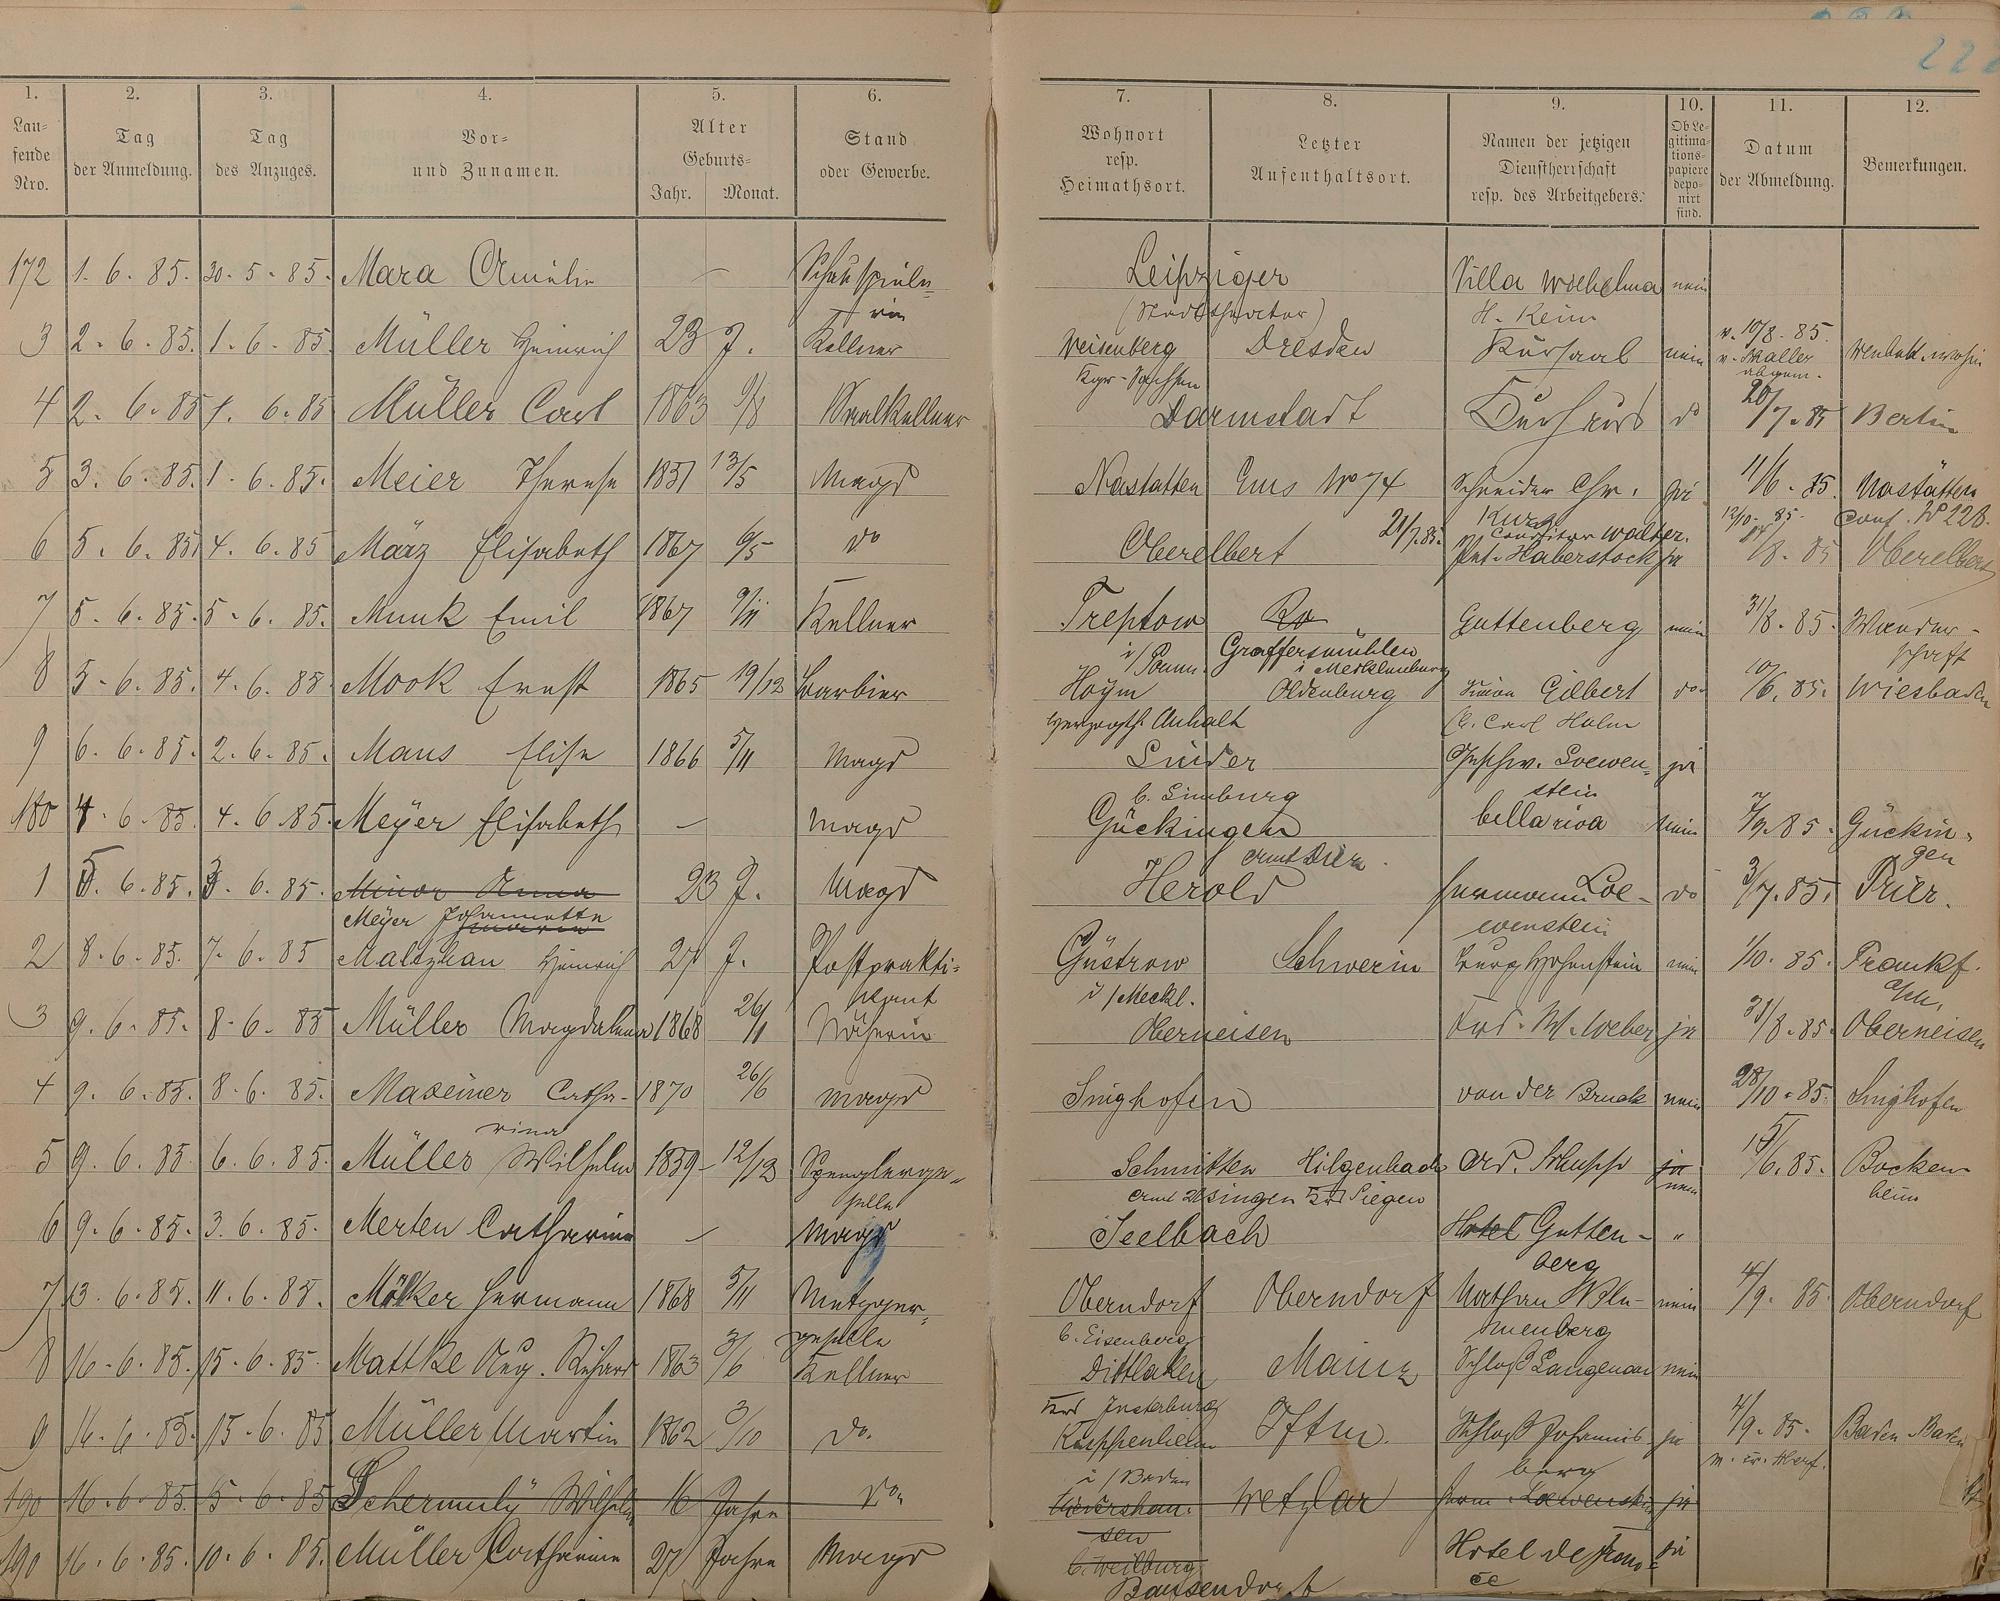 222
1. 2. 3. 4. 5. 6. 7. 8. 9. 10. 11. 12.
Lau-
fende
Nro.
Tag
der Anmeldung.
Tag
des Anzuges.
Vor-
und Zunamen.
Alter
Geburts-
Jahr. Monat.
Stand
oder Gewerbe.
Wohnort
resp.
Heimathsort.
Letzter
Aufenthaltsort.
Namen der jetzigen
Dienstherrschaft
resp. des Arbeitgebers.
Ob Le-
gitima-
tions-
papiere
depo-
nirt
sind.
Datum
der Abmeldung.
Bemerkungen.
172 1. 6. 85. 30. 5. 85. Mara Amélie — Schauspiele- Leipziger Villa nein
rin (Stadttheater) H. Keim
3 2. 6. 85. 1. 6. 85. Müller Heinrich 23 J. Kellner Weisenberg Dresden Kursaal nein v. 10/8. 85.
Kgr. Sachsen
4 2. 6. 85 1. 6. 85 Müller Carl 1863 9/8 Saalkellner Darmstadt Kurhaus do 20/7. 85 Berlin
5 3. 6. 85. 1. 6. 85. Meier Therese 1851 13/5 Magd Nastätten Ems No 74 Schneider Chr. ja 11/6. 85. Nastätten
21/7. 85. Kurz Conditor Walter. 12/10. 85. Conf. No 228.
6 5. 6. 85. 4. 6. 85 März Elisabeth 1867 6/5 do Oberelbert Pet. Haberstock ja /8. 85 Oberelbert
7 5. 6. 85. 5. 6. 85. Munk Emil 1867 9/11 Kellner Treptow Guttenberg nein 31/8. 85. Wander-
i/Pomm. Graffersmühlen i Mecklenburg schaft
8 5. 6. 85. 4. 6. 85 Mook Ernst 1865 19/12 Barbier Hoym Oldenburg Simon Gilbert do. 10/6. 85. Wiesbaden
Herzogth. Anhalt b. Carl Halm
9 6. 6. 85. 2. 6. 85. Maus Elise 1866 5/11 Magd Linder Geschw. Loewen- ja
b. Limburg stein
180 4. 6. 85. 4. 6. 85. Meyer Elisabeth — Magd Gückingen bella riva nein 7/9. 85. Gückin-
Amt Diez. gen
1 5. 6. 85. 3. 6. 85. Minor Anna 23 J. Magd Herold Hermann Loe- do 3/7. 85.
Meyer Johannette ewenstein
2 8. 6. 85. 7. 6. 85 Maltzhan Heinrich 27 J. Postprakti- Güstrow Schwerin Burg Hohenstein nein 1/10. 85. Frankf.
kant i/Meckl. a/M.
3 9. 6. 85. 8. 6. 85 Müller Magdalena 1868 26/1 Näherin Oberneisen Ferd. M. Weber ja 31/8. 85. Oberneisen
4 9. 6. 85. 8. 6. 85. Maxeiner Catha- 1870 26/6 Magd Singhofen von der Bruck nein 28/10. 85. Singhofen
rina
5 9. 6. 85 6. 6. 85. Müller Wilhelm 1859 12/12 Spenglerge- Schmitten Hilgenbach Ad. Schupp ja 15/6. 85. Bocken-
selle Amt Usingen Krs Siegen nein heim
6 9. 6. 85. 3. 6. 85. Merten Catharina — Magd Seelbach Hotel Gutten- "
berg
7 13. 6. 85. 11. 6. 85. Mölker Hermann 1868 5/11 Metzger- Oberndorf Oberndorf Nathan Blu- nein 4/9. 85. Oberndorf
geselle b. Eisenberg menberg
8 16. 6. 85. 15. 6. 85. Mattke Aug. Richard 1863 3/6 Kellner Dittlaken Mainz Schloß Langenau nein
Krs Insterburg
9 16. 6. 85. 15. 6. 85 Müller Martin 1862 3/10 do. Kuppenheim Schloß Johannis- ja 4/9. 85. Baden-Baden
i/Baden berg
190 16. 6. 85. 15. 6. 85 Schermuly Wilhelm 16 Jahre do. Wetzlar Herm. Loewenstein ja
sen
b. Weilburg
190 16. 6. 85. 10. 6. 85. Müller Catharina 27 Jahre Magd Hotel de Fran- ja
Bausendorf ce